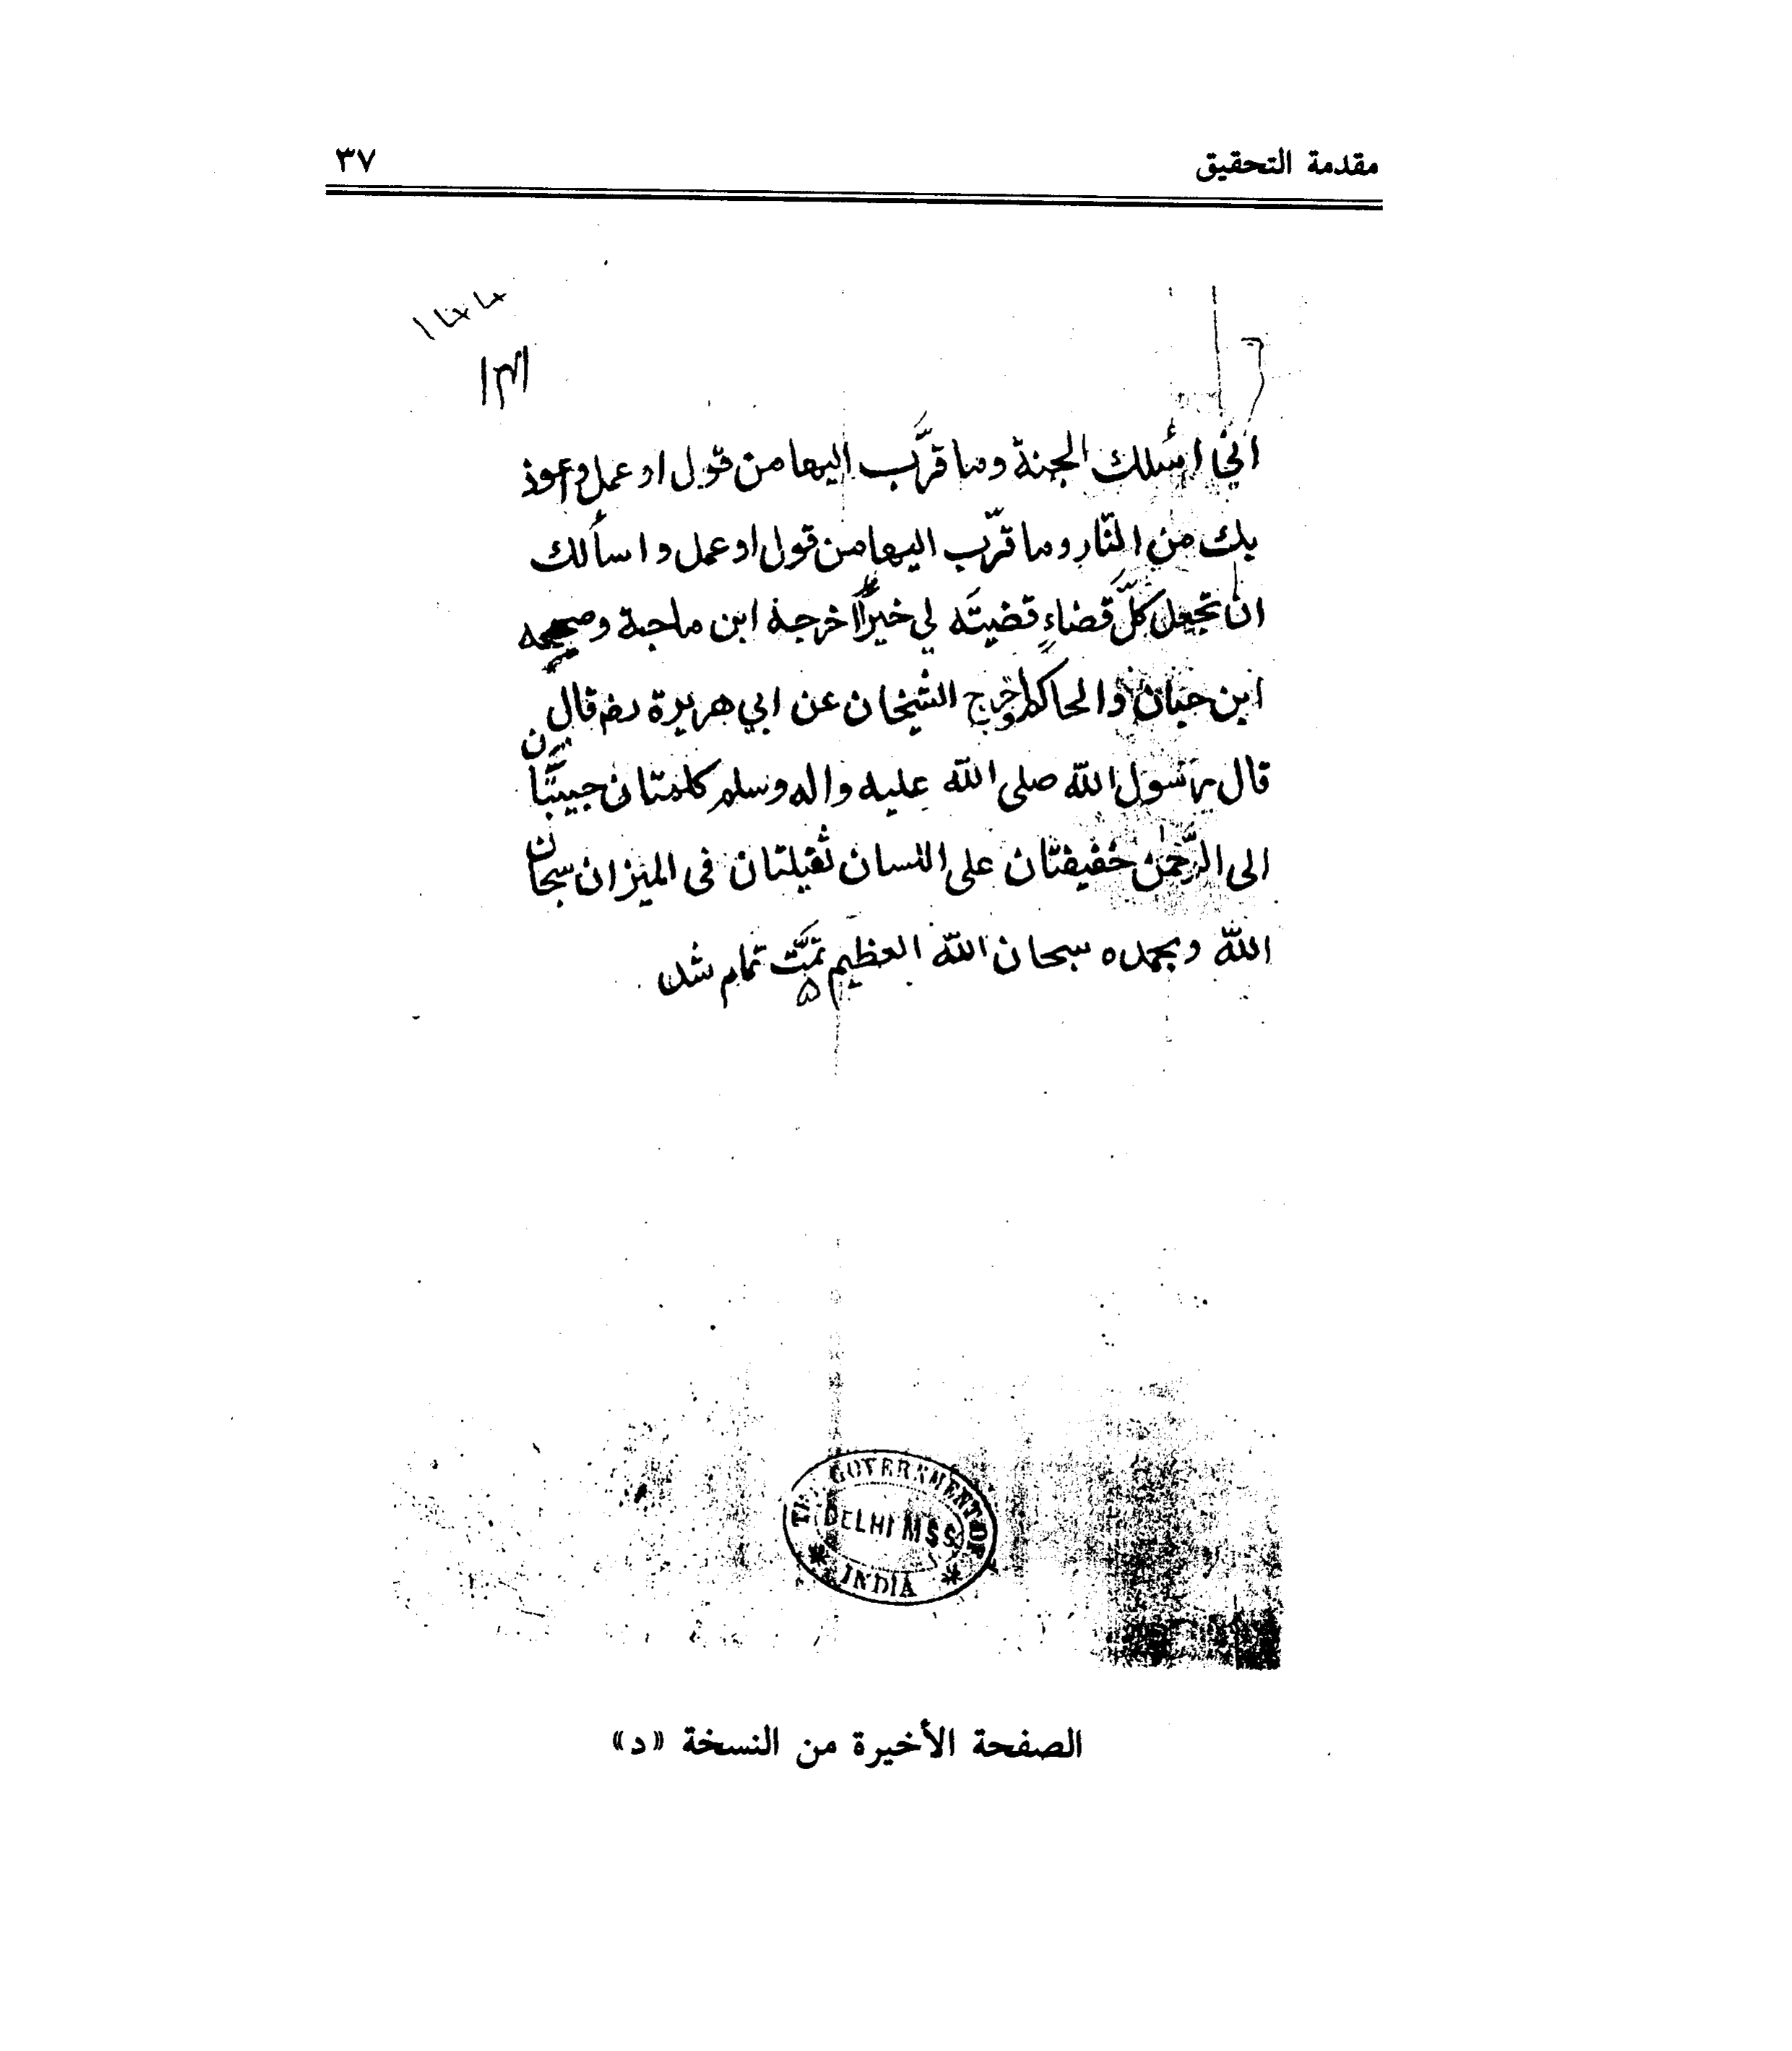 مقدمة التحقيق ٣٧
اني اسٔلك الجنة وما قرَّب اليها من قول او عمل واعوذ
بك من النّار وما قرّب اليها من قول او عمل و اسأ لك
ان تجعل كلَّ قضاءٍ قضيتَه لي خيرًا اخرجه ابن ماجة وصححه
ابن حبان والحاكم واخرج الشيخان عن ابي هريرة رضـ قال
قال رسول اللّه صلى اللّه عليه واله وسلم كلمتان حبيبتان
الى الرَّحمٰن خفيفتان على اللسان ثقيلتان فى الميزان سبحان
اللّه وبحمده سبحان اللّه العظيم تمَّت تمام شد
THE GOVERNMENT OF
DELHI MSS
INDIA
الصفحة الأخيرة من النسخة «د»